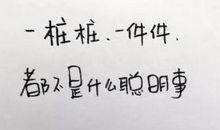 一桩桩、一件件、
都不是什么聪明事